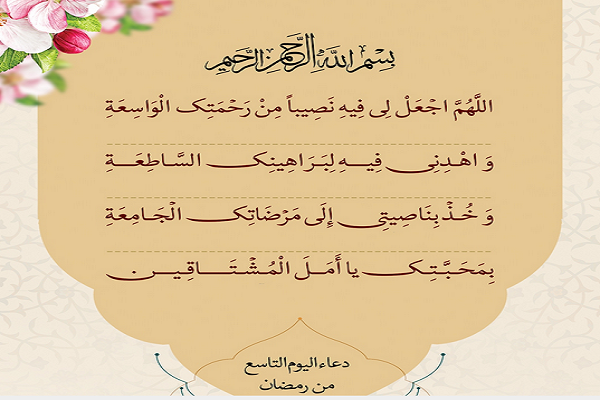 بِسْمِ اللَّهِ الرَّحْمَنِ الرَّحِيمِ
اللَّهُمَّ اجْعَلْ لِی فِیهِ نَصِیباً مِنْ رَحْمَتِک الْوَاسِعَةِ
وَ اهْدِنِی فِیهِ لِبَرَاهِینِک السَّاطِعَةِ
وَ خُذْ بِنَاصِیتِی إِلَی مَرْضَاتِک الْجَامِعَةِ
بِمَحَبَّتِک یا أَمَلَ الْمُشْتَاقِینَ
دعاء اليوم التاسع
من رمضان